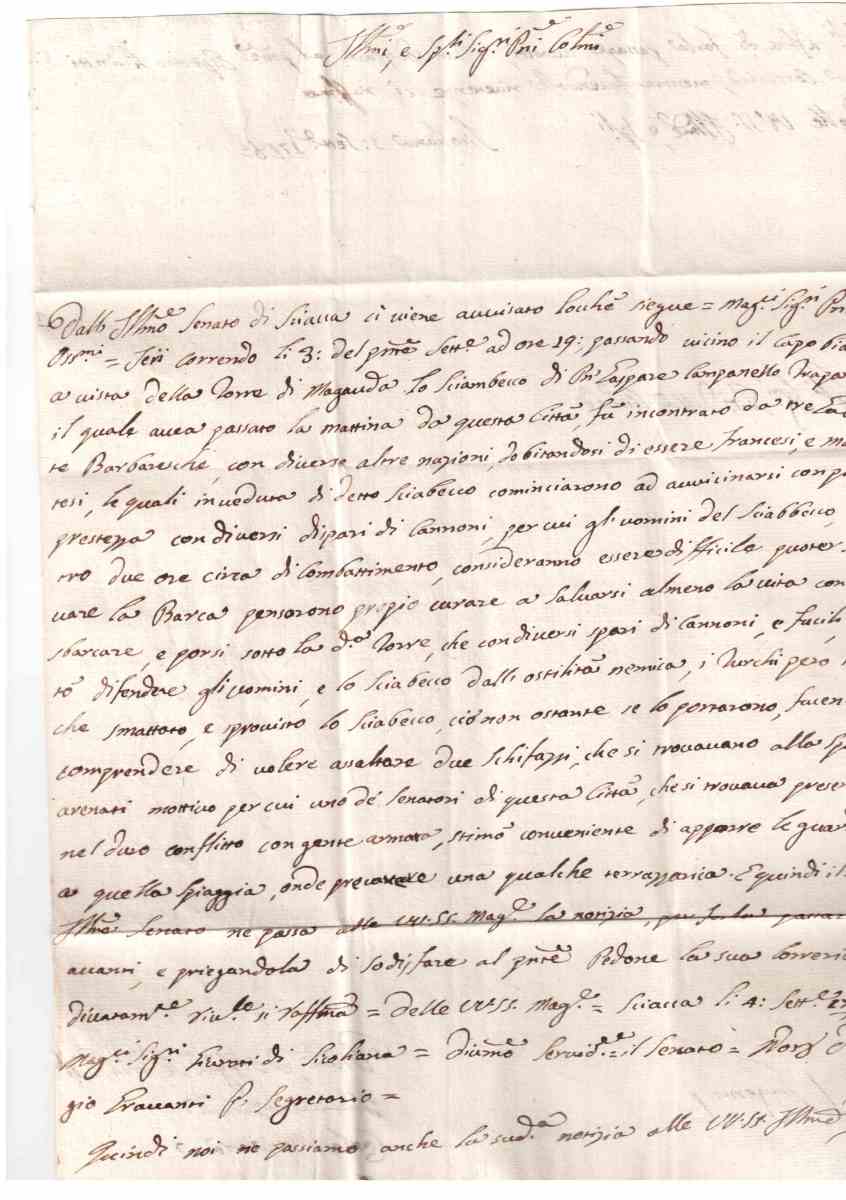 Ill.mi, e Sp.li Sig.ri P.ni Col.mi
Dallo Ill.mo Senato di Sciacca ci viene avvisato locche siegue = Mag.ci Sig.ri P.ni
Oss.mi = Jeri correndo li 3: del p.nte Sett.e ad ore 19: passando vicino il Capo Bia
a vista della Torre di Magauda lo Sciambecco di P.n Gaspare Campanello Trapa
il quale avea passato la mattina da questa Città, fù incontrato da tre
te Barbaresche, con diverse altre nazioni, dobitandosi di essere Francesi, e Ma
tesi, le quali in veduta di detto Sciabecco cominciarono ad avvicinarsi con
prestezza con diversi dispari di Cannoni, per cui gli uomini del Sciabbecco,
tro due ore circa di Combattimento, consideranno essere difficile puoter
vare la Barca pensorono propio curare a Salvarsi almeno la vita con
sbarcare, e porsi sotto la d.a Torre, che con diversi spari di Cannoni, e fucili
tò difendere gli uomini, e lo Sciabecco dalli ostilità nemica, i Turchi però
che smattato, e sprovisto lo Sciabecco, ciò non ostante se lo portarono, facen
comprendere di volere assaltare due Schifazzi, che si trovavano alla Sp
arenati mottivo per cui uno dé Senatori di questa Città, che si trovava prese
nel duro conflitto con gente armata, stimò conveniente di apporre le guar
a quella Spiaggia, onde precavere una qualche terrazzarica. E quindi il
Ill.mo Senato ne passa alle VV.SS. Mag.ce la notizia, per farla passar
avanti, e priegandola di sodisfare al p.nte Pedone la sua Correria
divotam.te si raffirmà = delle VV.SS. Mag.ce = Sciacca li 4: Sett.e
Mag.ci Sig.ri Giurati di Siculiana = Servid.e = il Senato =
gio Gravanti P. Segretario =
Quindi noi ne passiamo anche la sud.a notizia alle VV.SS. Ill.me